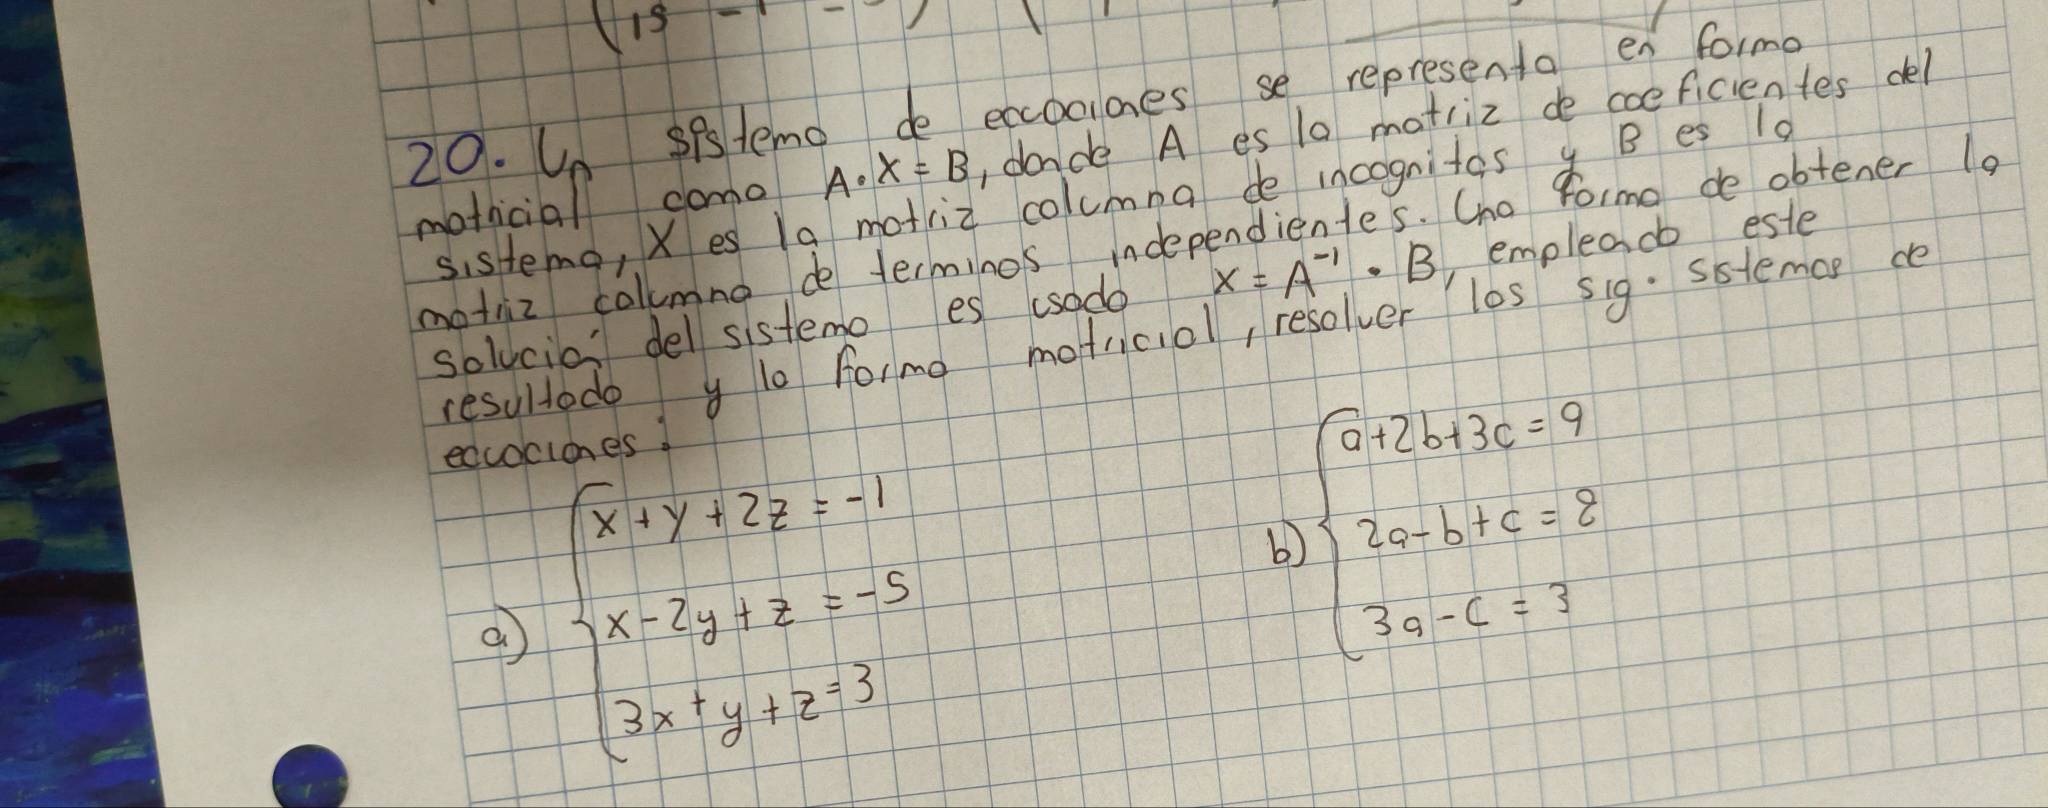 (15 -1 -
20. Un sistema de ecuaciones se representa en forma
matricial como A·X = B, donde A es la matriz de coeficientes del
sistema, X es la matriz columna de incognitas y B es la
matriz columna de terminos independientes. Una forma de obtener la
solución del sistema es usado X = A⁻¹ · B, empleado este
resultado y la forma matricial, resolver los sig. sistemas de
ecuaciones:
a) x + y + 2z = -1
x - 2y + z = -5
3x + y + z = 3
b) a + 2b + 3c = 9
2a - b + c = 8
3a - c = 3